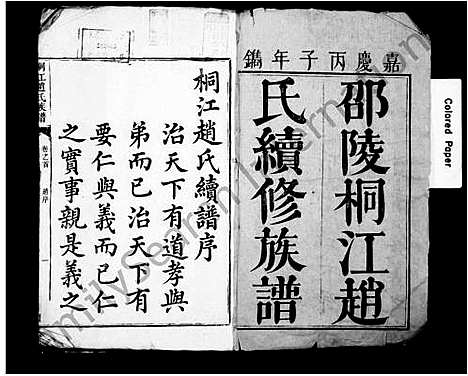 嘉慶丙子年鐫
邵陵桐江趙
氏續修族譜
桐江趙氏續譜序
治天下有道孝與
弟而已治天下有
要仁與義而已仁
之實事親是義之
桐江趙氏族譜
卷乙首
Colored Paper